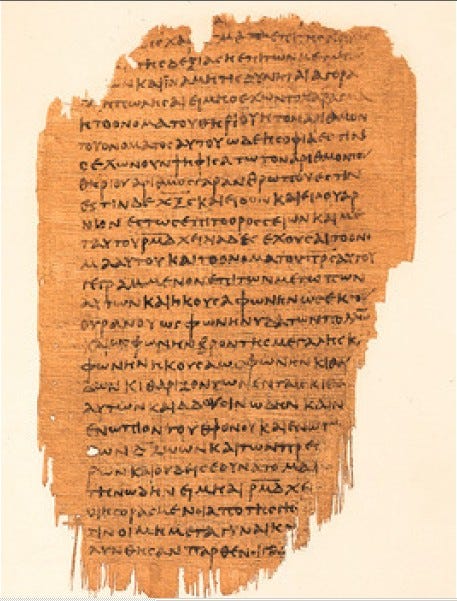 ΤΗϹΔΕΞΙΑϹΗΕΠΙΤΩΝΜΕΤ
ΝΚΑΙΙΝΑΜΗΤΙϹΔΥΝΗΤΑΙΑΓΟΡΑ
ΠΩΛΗϹΑΙΕΙΜΗΟΕΧΩΝΤΟΧΑΡΑΓΜΑ
ΗΤΟΟΝΟΜΑΤΟΥΘΗΡΙΟΥΗΤΟΝΑΡΙΘΜΟΝ
ΤΟΥΟΝΟΜΑΤΟϹΑΥΤΟΥΩΔΕΗϹΟΦΙΑΕϹΤΙΝ
ΟΕΧΩΝΟΥΝΨΗΦΙϹΑΤΩΤΟΝΑΡΙΘΜΟΝΤΟΥ
ΘΗΡΙΟΥΑΡΙΘΜΟϹΓΑΡΑΝΘΡΩΠΟΥΕϹΤΙΝ
ΕϹΤΙΝΔΕΧΞϚΚΑΙΕΙΔΟΝΚΑΙΕΙΔΟΥΑΡ
ΝΙΟΝΕϹΤΩϹΕΠΙΤΟΟΡΟϹϹΕΙΩΝΚΑΙΜΕ
ΤΑΥΤΟΥΡΜΔΧΕΙΛΙΑΔΕϹΕΧΟΥϹΑΙΤΟΟΝΟ
ΜΑΑΥΤΟΥΚΑΙΤΟΟΝΟΜΑΤΟΥΠΡϹΑΥΤΟΥ
ΓΕΓΡΑΜΜΕΝΟΝΕΠΙΤΩΝΜΕΤΩΠΩΝ
ΑΥΤΩΝΚΑΙΗΚΟΥϹΑΦΩΝΗΝΩϹΕΚΤΟΥ
ΟΥΡΑΝΟΥΩϹΦΩΝΗΝΥΔΑΤΩΝΠΟΛΛΩΝ
ΚΑΙΩϹΦΩΝΗΝΒΡΟΝΤΗϹΜΕΓΑΛΗϹΚ
ΦΩΝΗΝΗΚΟΥϹΑΩϹΦΩΝΗΝΚΙΘΑ
ΔΩΝΚΙΘΑΡΙΖΟΝΤΩΝΕΝΤΑΙϹΚΙΘΑ
ΑΥΤΩΝΚΑΙΑΔΟΥϹΙΝΩΔΗΝΚΑΙΝ
ΕΝΩΠΙΟΝΤΟΥΘΡΟΝΟΥΚΑΙΕΝΩΠΙ
ΤΩΝΔΖΩΩΝΚΑΙΤΩΝΠΡΕϹ
ΡΩΝΚΑΙΟΥΔΕΙϹΕΔΥΝΑΤΟΜΑ
ΤΗΝΩΔΗΝΕΙΜΗΑΙΡΜΔΧΕΙ
ΟΙΗΓΟΡΑϹΜΕΝΟΙΑΠΟΤΗϹΓΗϹ
ΤΙΝΟΙΜΗΜΕΤΑΓΥΝΑΙΚΩ
ΛΥΝΘΗϹΑΝΠΑΡΘΕΝΟΙΓΑΡ